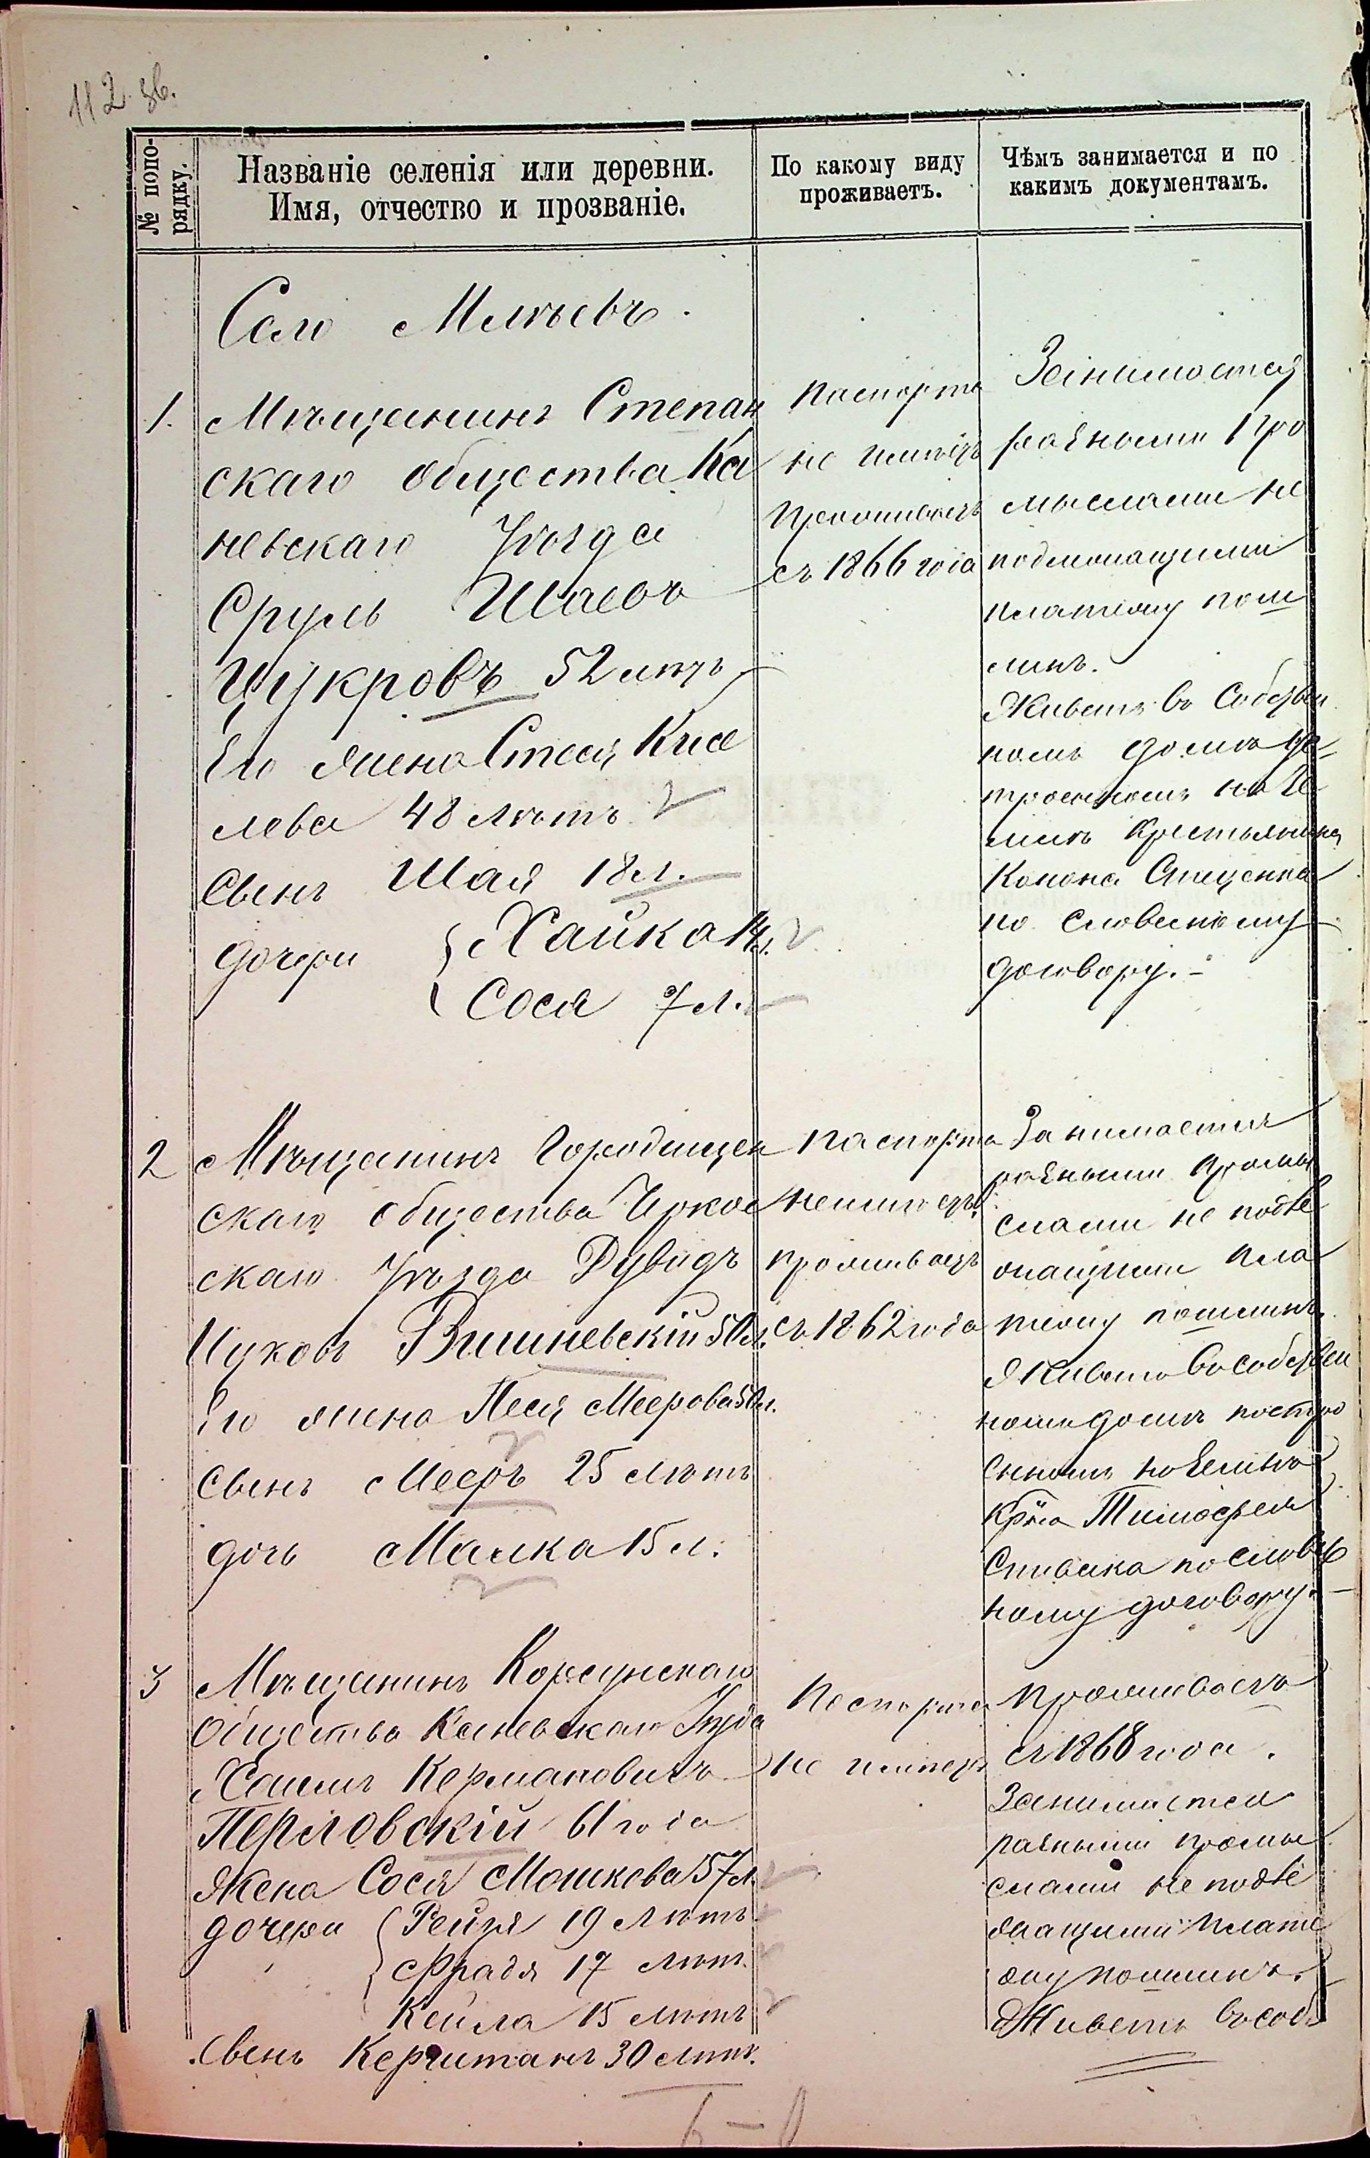 112 зв.
№ попо-
рядку.
Названіе селенія или деревни.
Имя, отчество и прозваніе.
По какому виду
проживаетъ.
Чѣмъ занимается и по
какимъ документамъ.
Село Млѣевъ.
1.
Мѣщанинъ Степан
скаго общества Ка
невскаго Уѣзда
Сруль Шаевъ
Цукровъ 52 лѣтъ
Его жена Стеся Кисе
лева 48 лѣтъ
Сынъ Шая 18 л.
дочери Хайка 14 л.
Сося 7 л.
Паспорта
не имѣетъ
Проживаетъ
съ 1866 года
Занимается
разными про
мыслами не
подлежащими
платежу пош
линъ.
Живетъ въ Собствен
номъ домѣ ус=
троенномъ на Зе
млѣ Крестьянина
Конона
по словесному
договору.-
2
Мѣщанинъ Городищен
скаго общества Черкас
скаго Уѣзда Дувидъ
Ицковъ Вишневскій 50 л.
Его жена Песя Меерова 50 л.
Сынъ Мееръ 25 лѣтъ
дочь Малка 15 л.
Паспорта
неимѣетъ.
проживаетъ
съ 1862 года
Занимается
разными промы
слами не подле
жащими пла
тежу пошлинъ.
Живетъ въ собствен
номъ домѣ постро
енномъ на Землѣ
Кр-на Тимофея
Спивака по словес
ному договору.-
3
Мѣщанинъ Корсунскаго
Общества Каневскаго Уѣзда
Хаимъ Кермановичъ
Перловскій 61 года
Жена Сося Мошкова 57 л.
дочери Рейзя 19 лѣтъ
Фрадя 17 лѣтъ.
Кейла 15 лѣтъ
Сынъ 30 лѣтъ.
Паспорта
не имѣетъ
Проживаетъ
съ 1868 года.
Занимается
разными промы
слами не подле
жащими плате
жу пошлинъ.
Живетъ въ соб